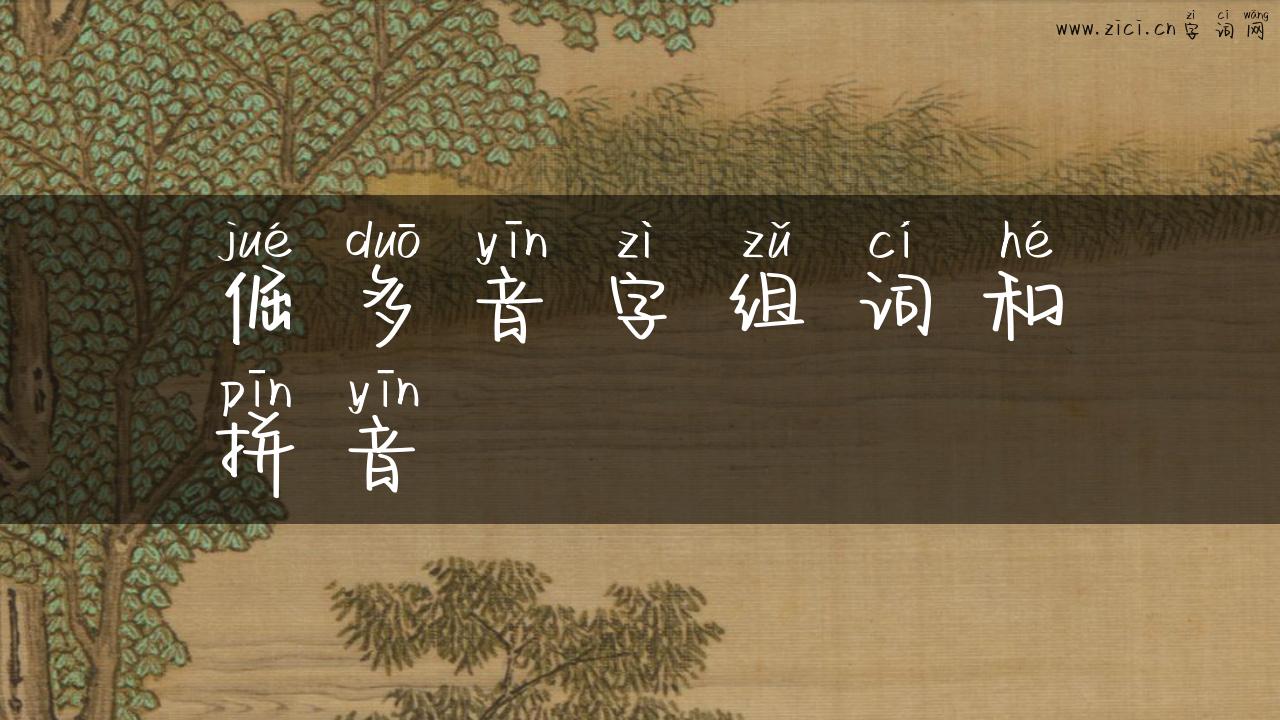 zì cí wǎng
www.zici.cn字词网
jué duō yīn zì zǔ cí hé
倔多音字组词和
pīn yīn
拼音